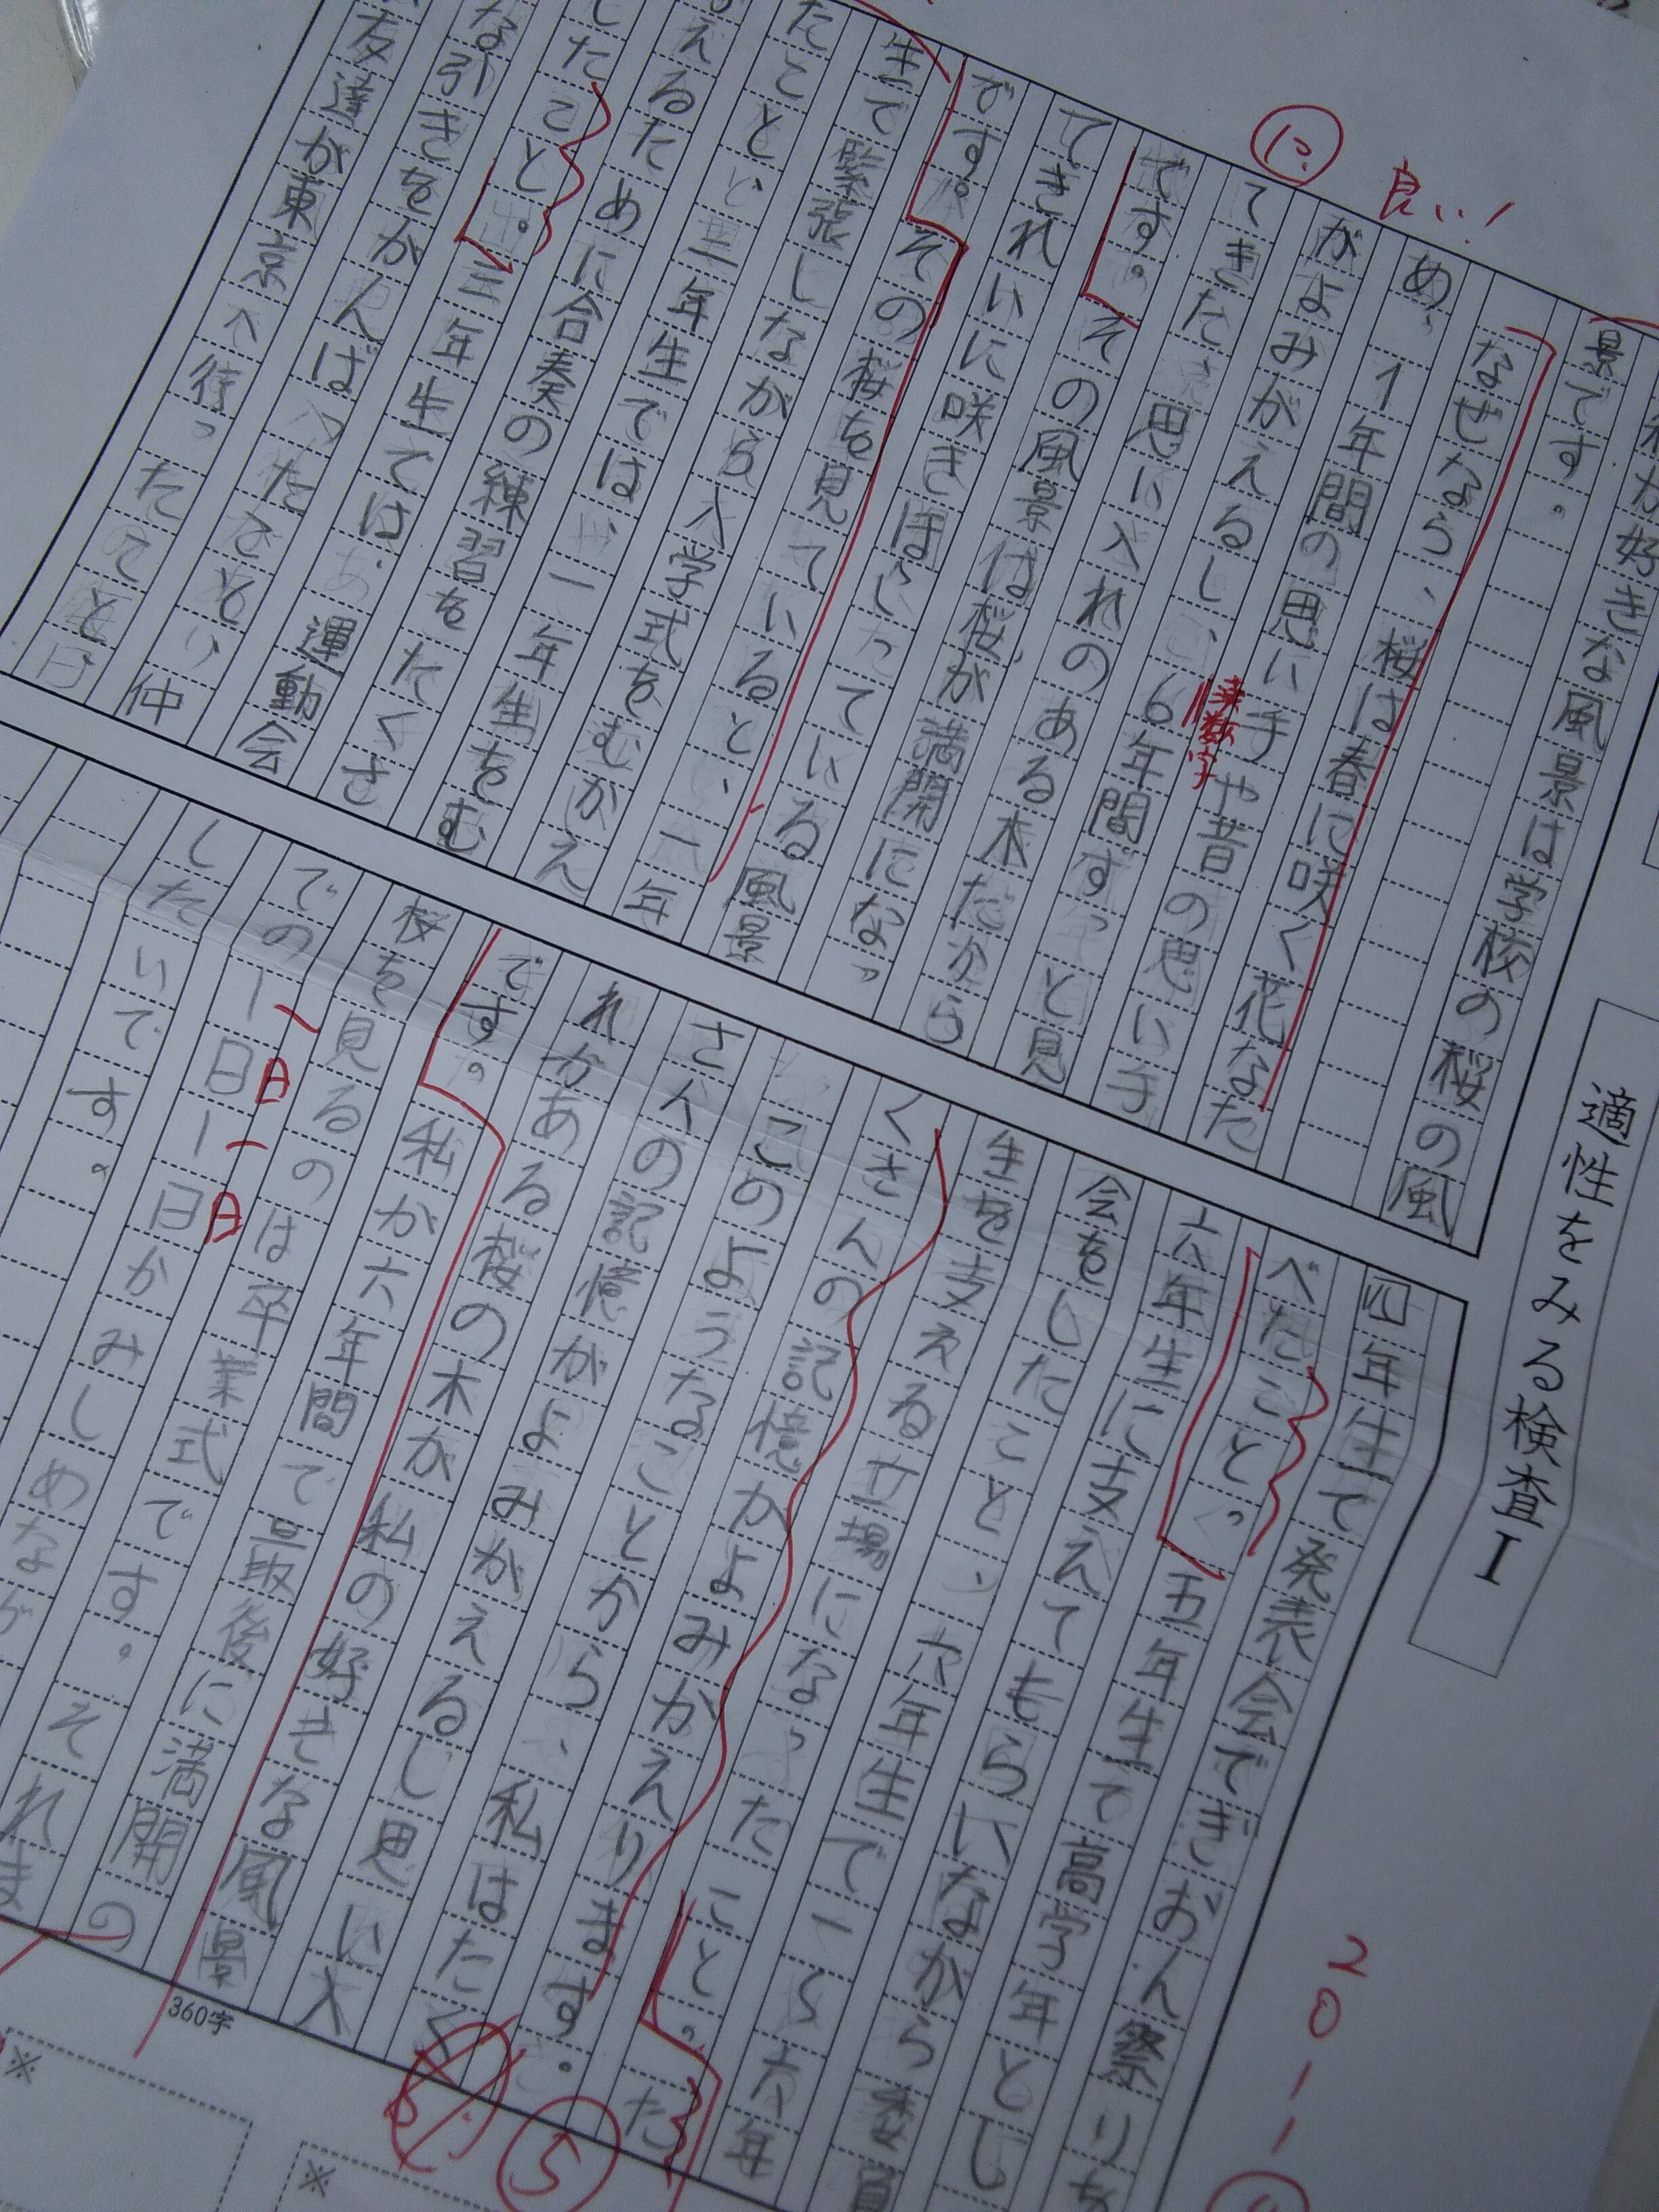 適性をみる検査Ⅰ
好きな風景は学校の桜の風
景です。
なぜなら、桜は春に咲く花なた
め、1年間の思い手や昔の思い手
がよみがえるし、6年間ずっと見
てきた思い入れのある木だから
です。その風景は桜が満開になっ
てきれいに咲きほこっている風景
です。その桜を見ていると、一年
生で緊張しながら入学式をむかえ
たこと、二年生では、一年生をむ
かえるために合奏の練習をたくさ
んしたこと。三年生では、運動会
な引きをがんばったこと、仲
友達が東京へ行ったこと、
四年生で発表会でぎおん祭りを
べたこと。五年生で高学年とし
六年生に支えてもらいながら委員
会をしたこと、六年生で一〜六年
生を支える立場になったこと。た
くさんの記憶がよみがえります。
このようなことから、私はたく
さんの記憶がよみがえるし思い入
れがある桜の木が私の好きな風景
です。私が六年間で最後に満開の
桜を見るのは卒業式です。それま
での1日1日をかみしめなが
したいです。
良い!
漢数字
一日一日
360字
※
※
⑤
2011